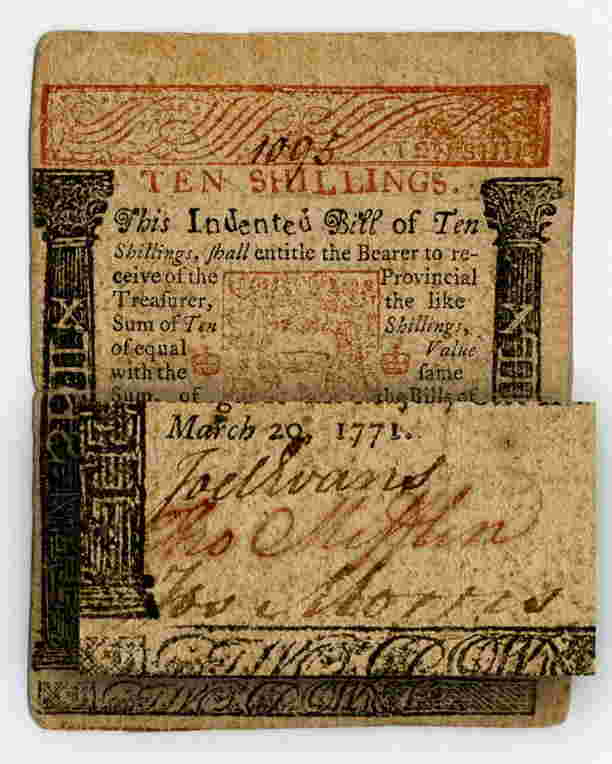 1095
TEN SHILLINGS.
This Indented Bill of Ten
Shillings, ſhall entitle the Bearer to re-
ceive of the Provincial
Treaſurer, the like
Sum of Ten Shillings,
of equal Value
with the ſame
Sum of the Bills of
March 20, 1771.
Joel Evans
Tho Mifflin
Jos Morris